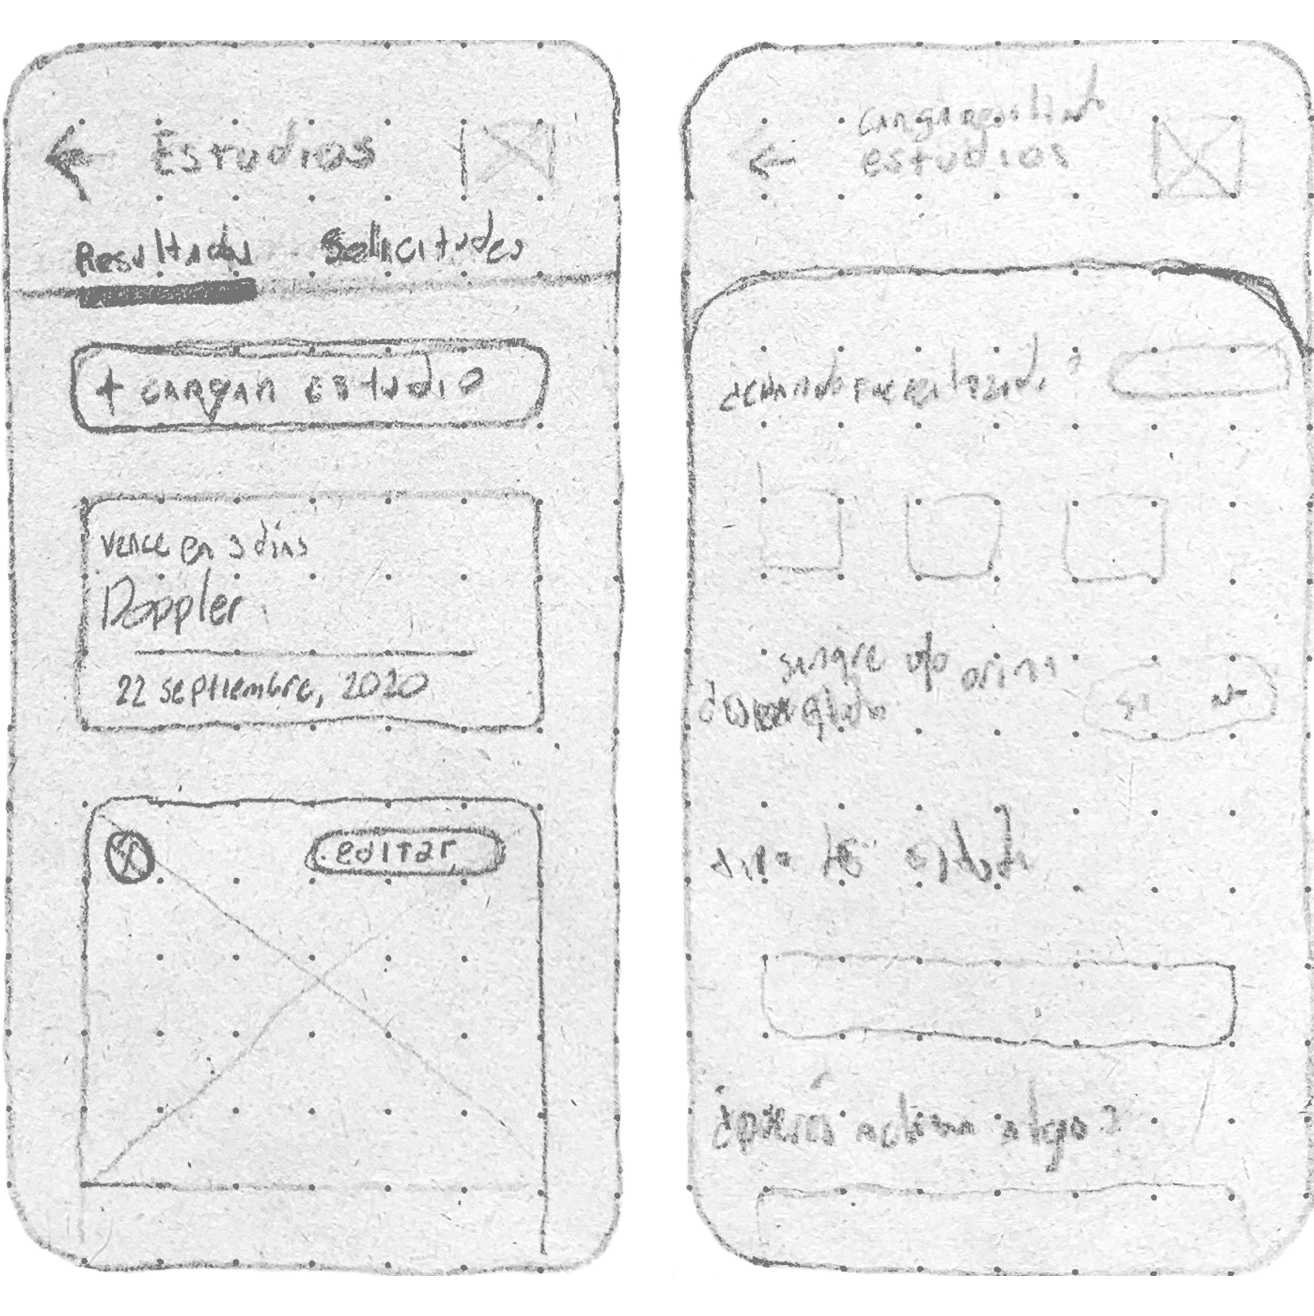 Estudios
Resultados Solicitudes
+ CARGAR ESTUDIO
vence en 3 días
Doppler
22 septiembre, 2020
editar
carga resultado
estudios
¿cuándo fue realizado?
sangre y/o orina
si no
¿querés aclarar algo?